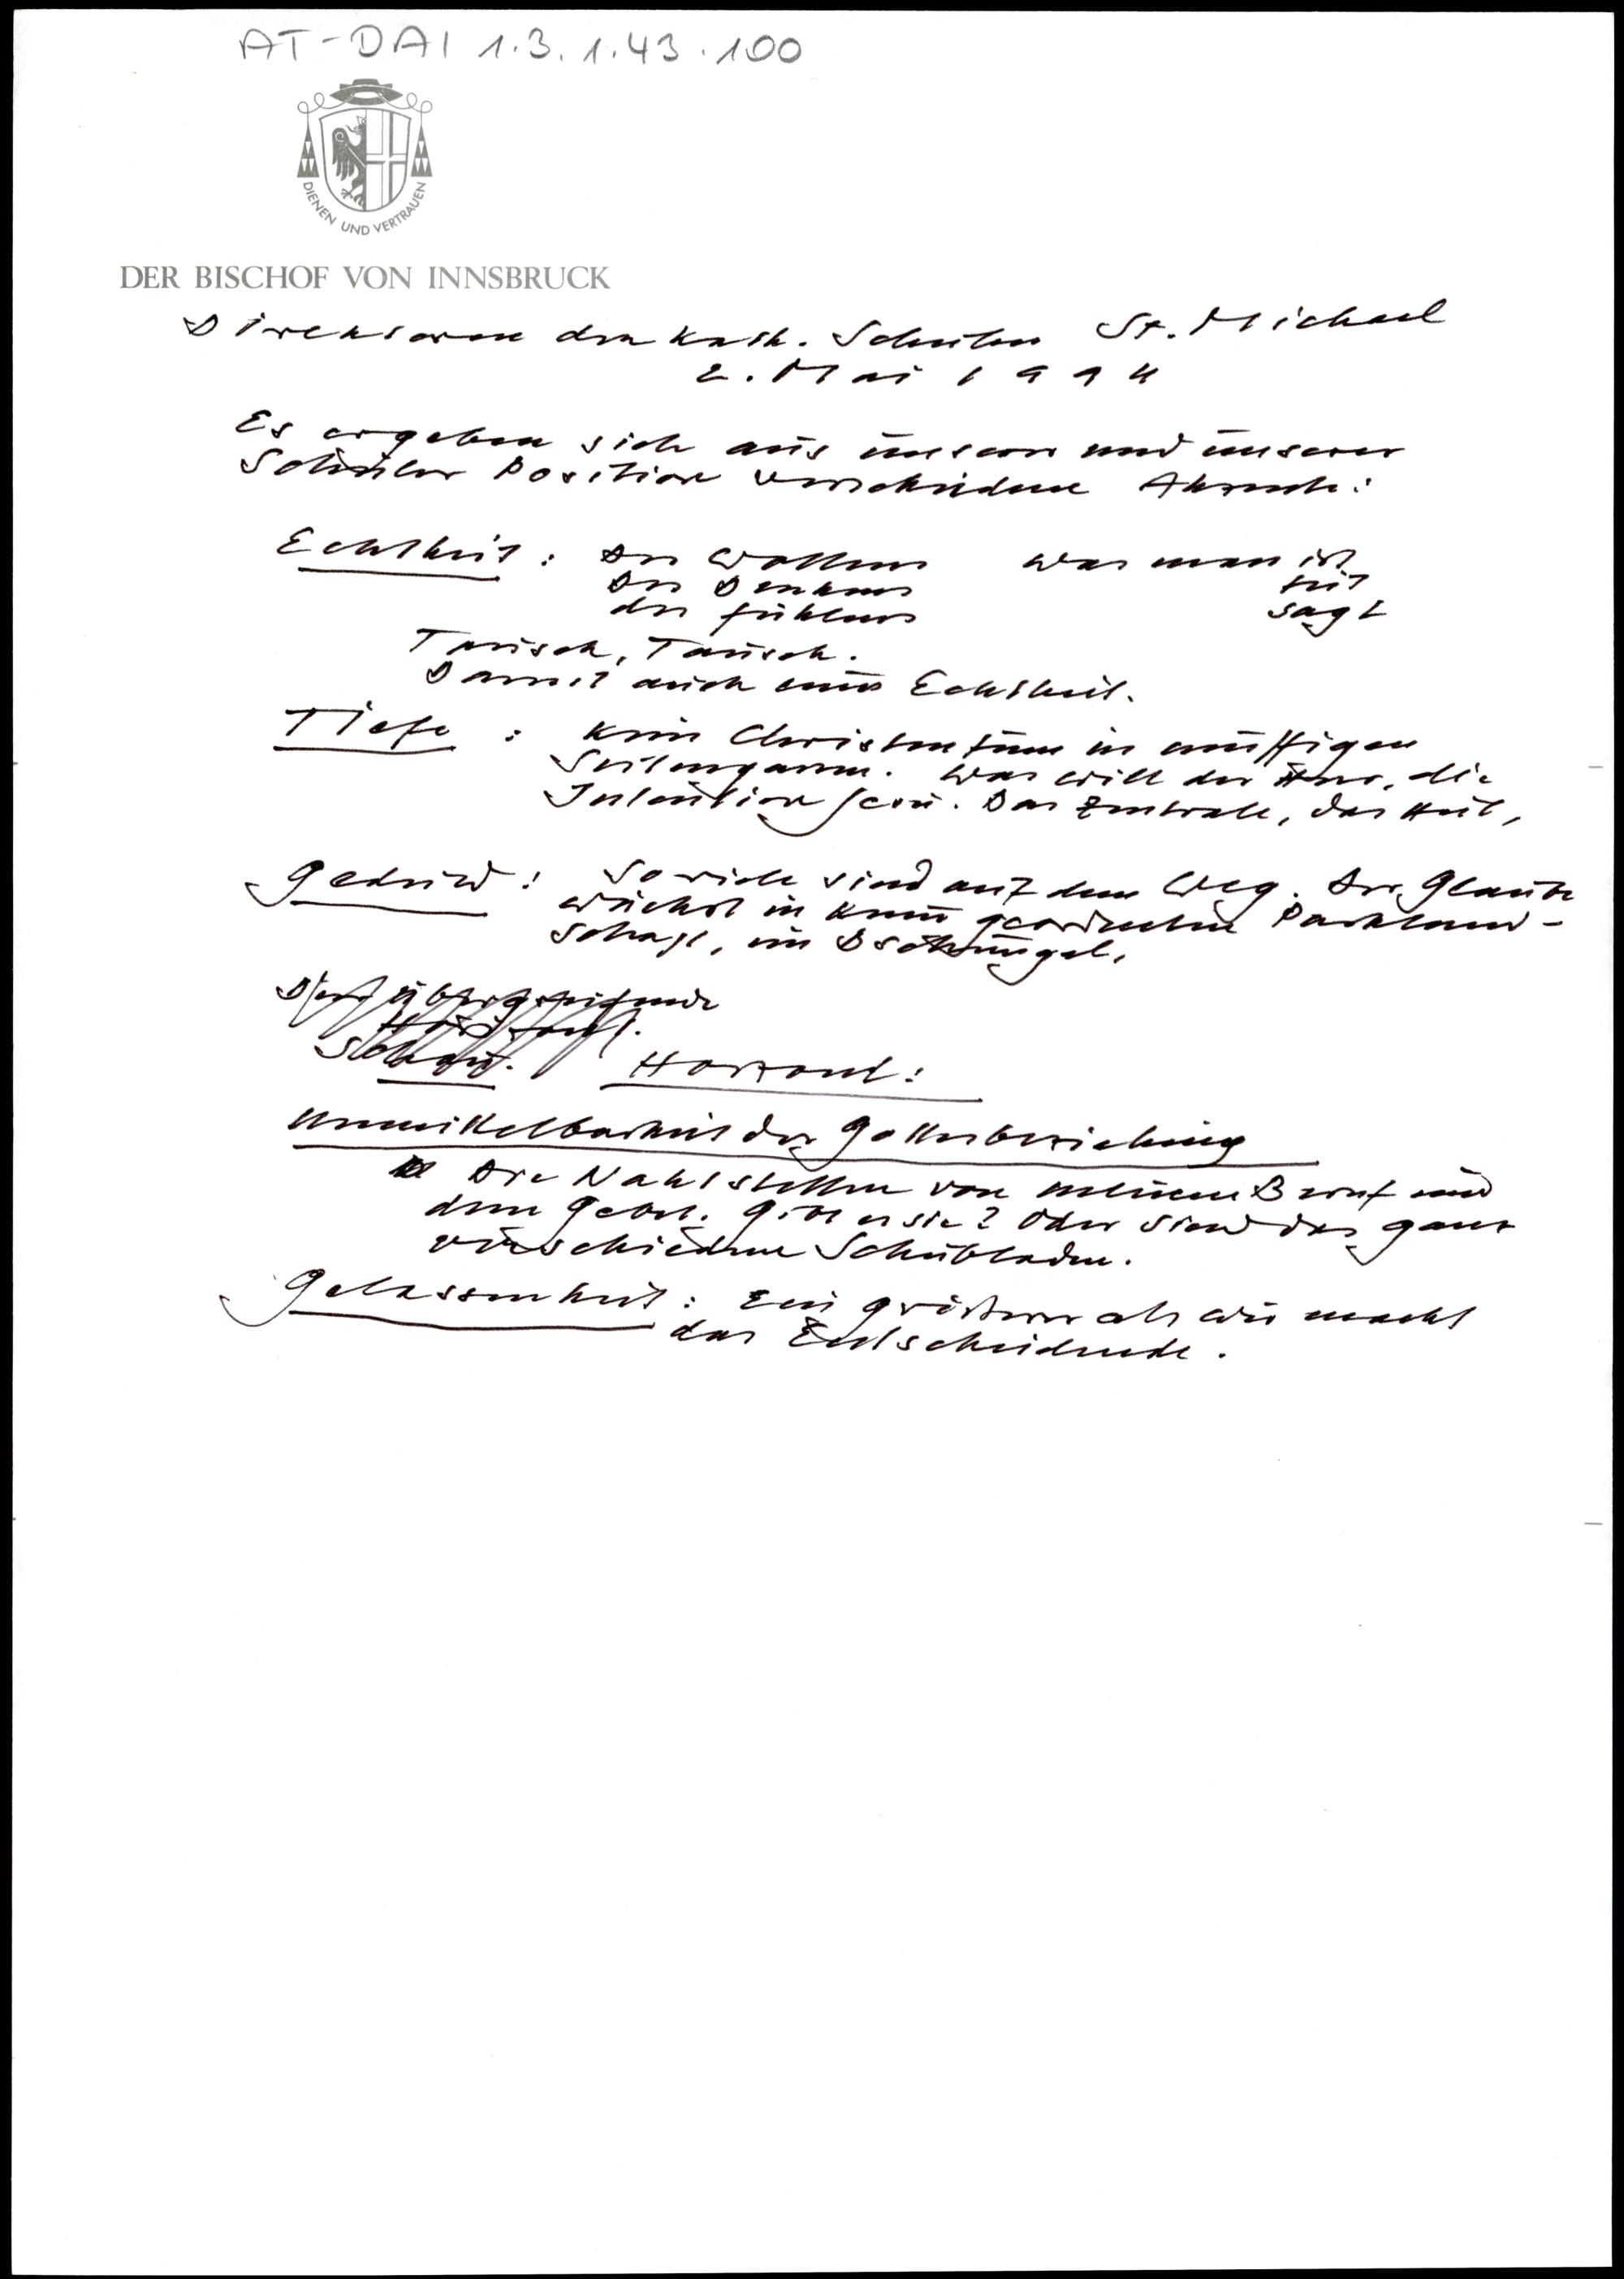 AT-DAI 1.3.1.43.100
DIENEN UND VERTRAUEN
DER BISCHOF VON INNSBRUCK
Direktoren der kath. Schulen St. Michael
2. Mai 1994
Es ergeben sich aus unserer und unserer
Schüler Position verschiedene Akzente:
Echtheit: Des Wollens was man ist
Des Denkens tut
des Fühlens sagt
Tausch, Tausch.
Damit auch eine Echtheit.
Tiefe: Kein Christentum in muffigen
Seitengassen. Was will der Herr, die
Intention Jesu. Das Zentrale, das Heil,
Geduld: So viele sind auf dem Weg. Der Glaube
wächst in keiner geordneten Parkland-
schaft, im Dschungel,
Der übergreifende
Horizont.
Horizont:
Unmittelbarkeit der Gottesbeziehung
Die Nahtstellen von meinem Beruf und
dem Gebet. Gibt es sie? Oder sind das ganz
verschiedene Schubladen.
Gelassenheit: Ein größerer als wir macht
das Entscheidende.